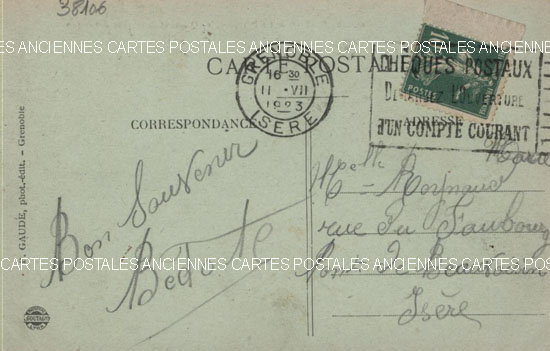 38106
ANCIENNES CARTES POSTALES ANCIENNES CARTES POSTALES ANCIENNES CARTES POSTALES ANCIENNES
CARTE POSTALE
GRENOBLE
16 30
11 VII
1923
ISÈRE
CHÈQUES POSTAUX
DEMANDEZ L'OUVERTURE
D'UN COMPTE COURANT
POSTES
CORRESPONDANCE
ADRESSE
GAUDE, phot.-édit. - Grenoble
Bon Souvenir
Melle
rue du Faubourg
Isère
CARTES POSTALES ANCIENNES CARTES POSTALES ANCIENNES CARTES POSTALES ANCIENNES CARTES